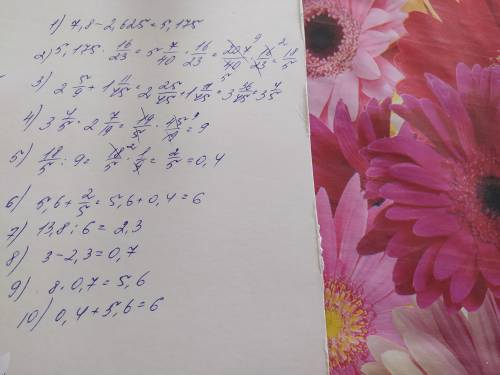 1) 7,8 - 2,625 = 5,175
2) 5,175 · 16/23 = 5 7/40 · 16/23 = 207/40 · 16/23 = 18/5
3) 2 5/9 + 1 11/45 = 2 25/45 + 1 11/45 = 3 36/45 = 3 4/5
4) 3 4/5 · 2 7/19 = 19/5 · 45/19 = 9
5) 18/5 : 9 = 18/5 · 1/9 = 2/5 = 0,4
6) 5,6 + 2/5 = 5,6 + 0,4 = 6
7) 13,8 : 6 = 2,3
8) 3 - 2,3 = 0,7
9) 8 · 0,7 = 5,6
10) 0,4 + 5,6 = 6